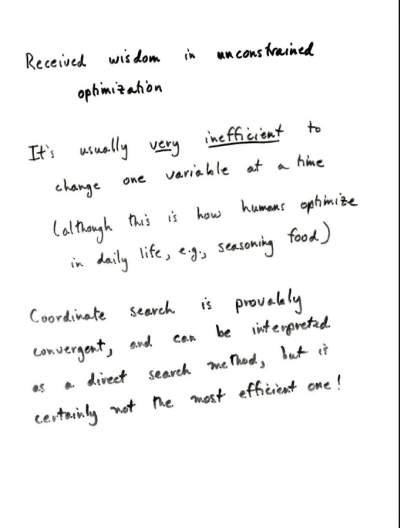 Received wisdom in unconstrained
optimization
It's usually very inefficient to
change one variable at a time
(although this is how humans optimize
in daily life, e.g., seasoning food)
Coordinate search is provably
convergent, and can be interpreted
as a direct search method, but is
certainly not the most efficient one!